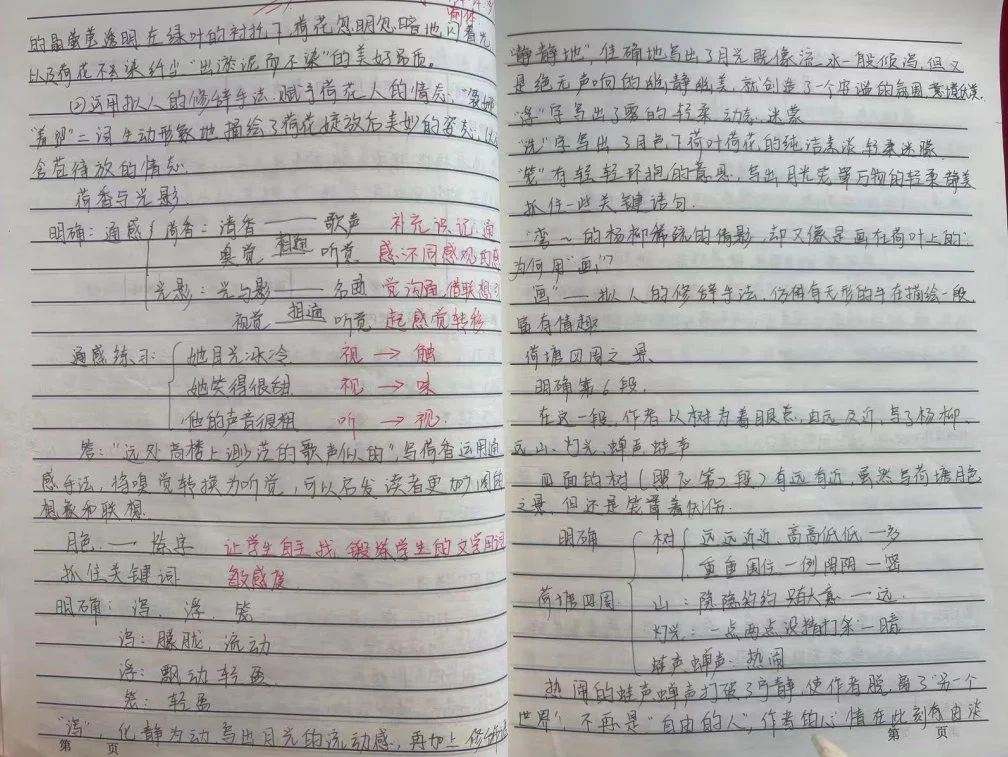 的晶莹透明,在绿叶的衬托下,荷花忽明忽暗地闪着光,
以及荷花不去染纤尘"出淤泥而不染"的美好品质。
②运用拟人的修辞手法,赋予荷花人的情态,"袅娜"
"羞涩"二词生动形象地描绘了荷花绽放后美妙的姿态,
含苞待放的情态
荷香与光影
明确:通感 清香:清香——歌声 补充识记:通
嗅觉 相通 听觉 感:不同感观的感
光影:光与影——名曲 觉沟通,借联想引
视觉 相通 听觉 起感觉转移
通感练习: 她目光冰冷 视→触
她笑得很甜 视→味
他的声音很粗 听→视
答:"远处高楼上渺茫的歌声似的",写荷香运用通
感手法,将嗅觉转换为听觉,可以启发读者更加
想象和联想.
月色→炼字 让学生自主找,锻炼学生的文学用词
抓住关键词 敏感度
明确:泻、浮、笼
泻:朦胧,流动
浮:飘动轻盈
笼:轻盈
"泻",化静为动写出月光的流动感,再加上修饰语
第 页
"静静地",准确地写出了月光既像流水一般倾泻,但又
是绝无声响的幽静幽美,就创造了一个安谧的氛围,意境优美.
"浮"字写出了雾的轻柔动态,迷蒙
"洗"字写出了月色下荷叶荷花的纯洁素淡轻柔迷朦
"笼"有轻轻环抱的意思,写出月光笼罩万物的轻柔静美
抓住一些关键语句.
"弯~的杨柳稀疏的倩影,却又像是画在荷叶上的".
为何用"画"?
"画"—拟人的修辞手法,仿佛有无形的手在描绘一般,
富有情趣
荷塘四周之景
明确第6段,
在这一段,作者以树为着眼点,由远及近,写了杨柳、
远山、灯光、蝉声蛙声
四面的树(照应第2段)有远有近,虽然写荷塘月色
之景,但还是笼罩着忧伤.
明确 树 远远近近,高高低低—多
重重围住,一例阴阴—密
荷塘四周 山:隐隐约约 只有大意—远
灯光:一点两点没精打采—暗
蛙声蝉声:热闹
热闹的蛙声蝉声打破了宁静,使作者脱离了"另一个
世界",不再是"自由的人",作者的心情在此刻有由淡
第 页